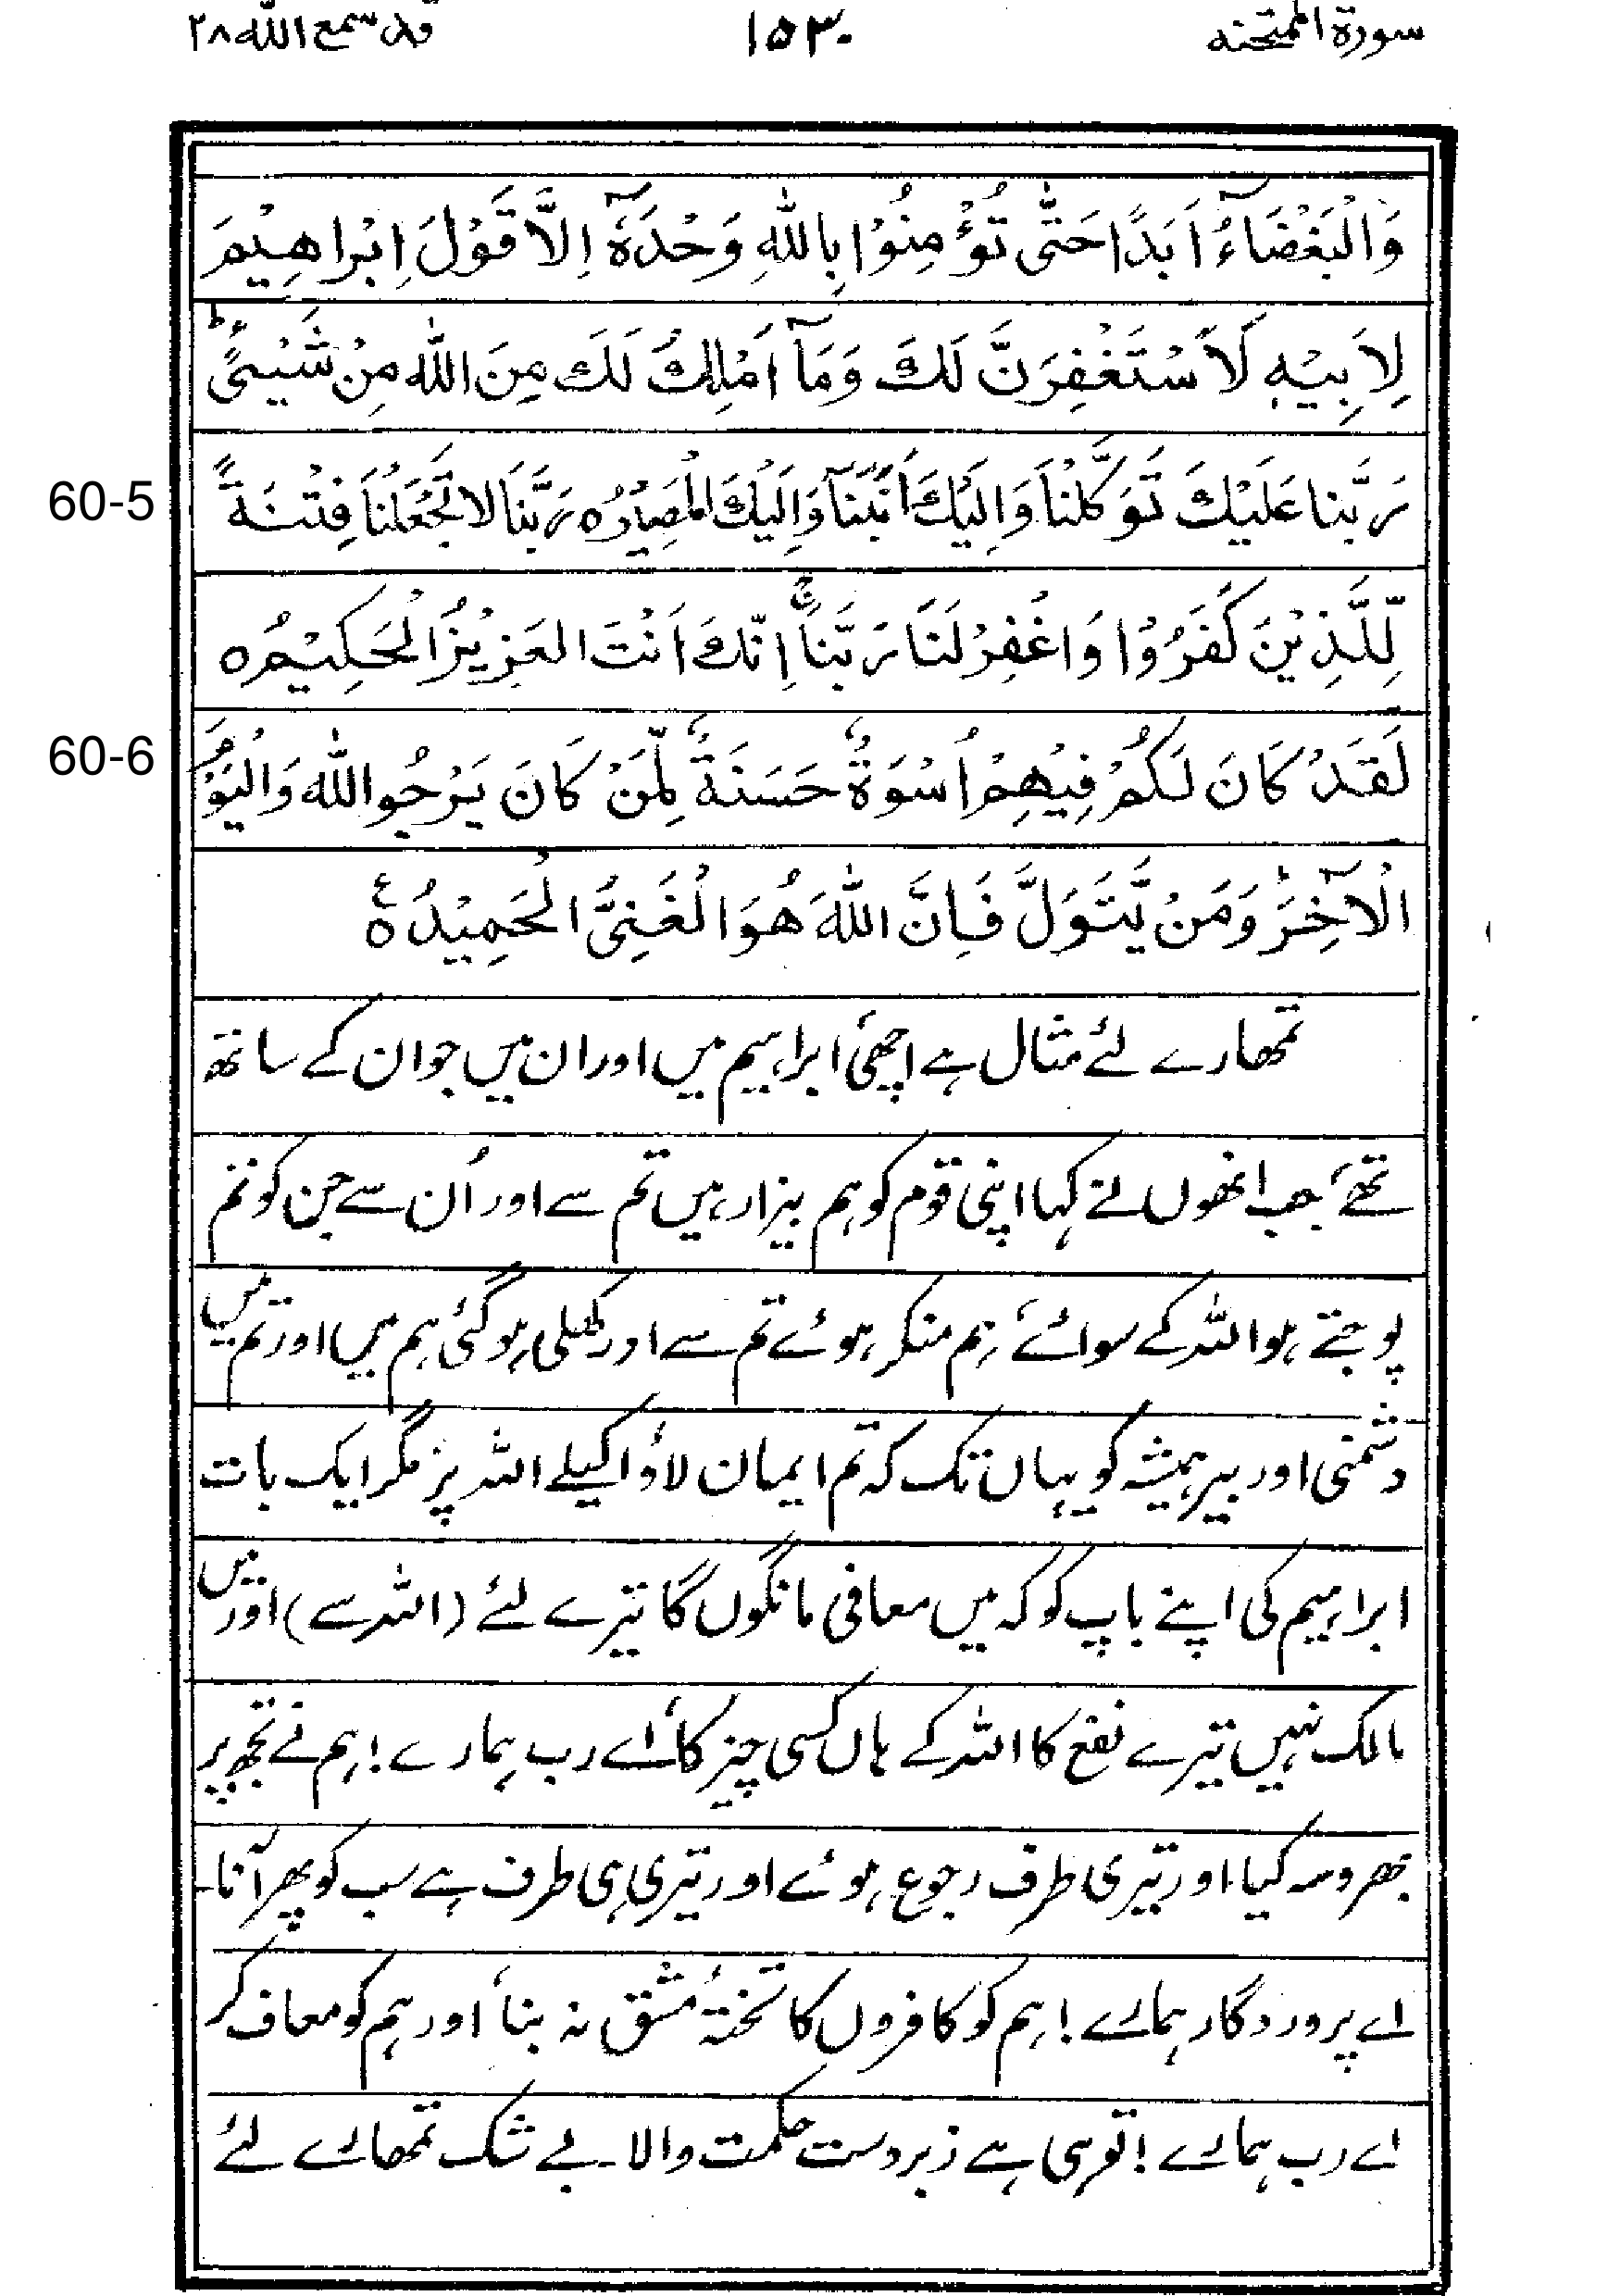 سورۃ الممتحنہ ۱۵۳۰ قد سمع اللہ ۲۸
وَالْبَغْضَآءُ اَبَدًا حَتّٰی تُؤْمِنُوْا بِاللّٰهِ وَحْدَهٗٓ اِلَّا قَوْلَ اِبْرَاهِیْمَ
لِاَبِیْهِ لَاَسْتَغْفِرَنَّ لَكَ وَمَآ اَمْلِكُ لَكَ مِنَ اللّٰه مِنْ شَیْیءٍ ؕ
60-5 رَبَّنا عَلَیْكَ تَوَكَّلْنَا وَاِلَیْكَ اَنَبْنَا وَاِلَیْكَ الْمَصِیْرُ ہ رَبَّنَا لا تَجْعَلْنَا فِتْنَةً
لِّلَّذِیْنَ كَفَرُوْا وَاغْفِرْ لَنَا رَبَّنَا ۚ اِنَّكَ اَنْتَ العَزِیْزُ الْحَكِیْمُ ہ
60-6 لَقَدْ كَانَ لَكُمْ فِیْهِمْ اُسْوَةٌ حَسَنَةٌ لِّمَنْ كَانَ یَرْجُو اللّٰه وَالْیَوْمَ
الْاٰخِرَ ؕ وَمَنْ یَّتَوَلَّ فَاِنَّ اللّٰهَ هُوَ الْغَنِیُّ الْحَمِیْدُ ہ ع
تمھارے لئے مثال ہے اچھی، ابراہیم میں اور ان میں جو ان کے ساتھ
تھے، جب انھوں نے کہا اپنی قوم کو ہم بیزار ہیں تم سے اور اُن سے جن کو تم
پوجتے ہو اللہ کے سوائے، ہم منکر ہوئے تم سے اور کھلی ہو گئی ہم میں اور تم میں
دشمنی اور بیر ہمیشہ کو یہاں تک کہ تم ایمان لاؤ اکیلے اللہ پر، مگر ایک بات
ابراہیم کی اپنے باپ کو کہ میں معافی مانگوں گا تیرے لئے (اللہ سے) اور میں
مالک نہیں تیرے نفع کا اللہ کے ہاں کسی چیز کا، اے رب ہمارے! ہم نے تجھ پر
بھروسہ کیا اور تیری طرف رجوع ہوئے اور تیری ہی طرف ہے سب کو پھر آنا۔
اے پروردگار ہمارے! ہم کو کافروں کا تختۂ مشق نہ بنا، اور ہم کو معاف کر
اے رب ہمارے! تو ہی ہے زبردست حکمت والا۔ بے شک تمھارے لئے